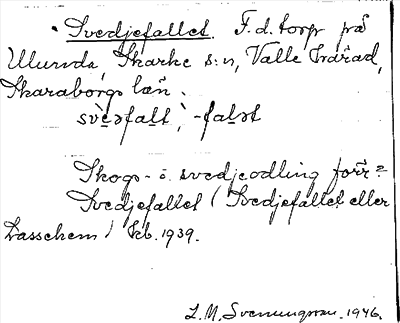 Svedjefallet. F.d. torp på
Ulunda Skarke s:n, Valle härad,
Skaraborgs län.
svèəfalt, -falət
Skogs- o. svedjeodling förr?
Svedjefallet (Svedjefallet eller
) Jeb. 1939.
L. M. Svenungsson. 1946.